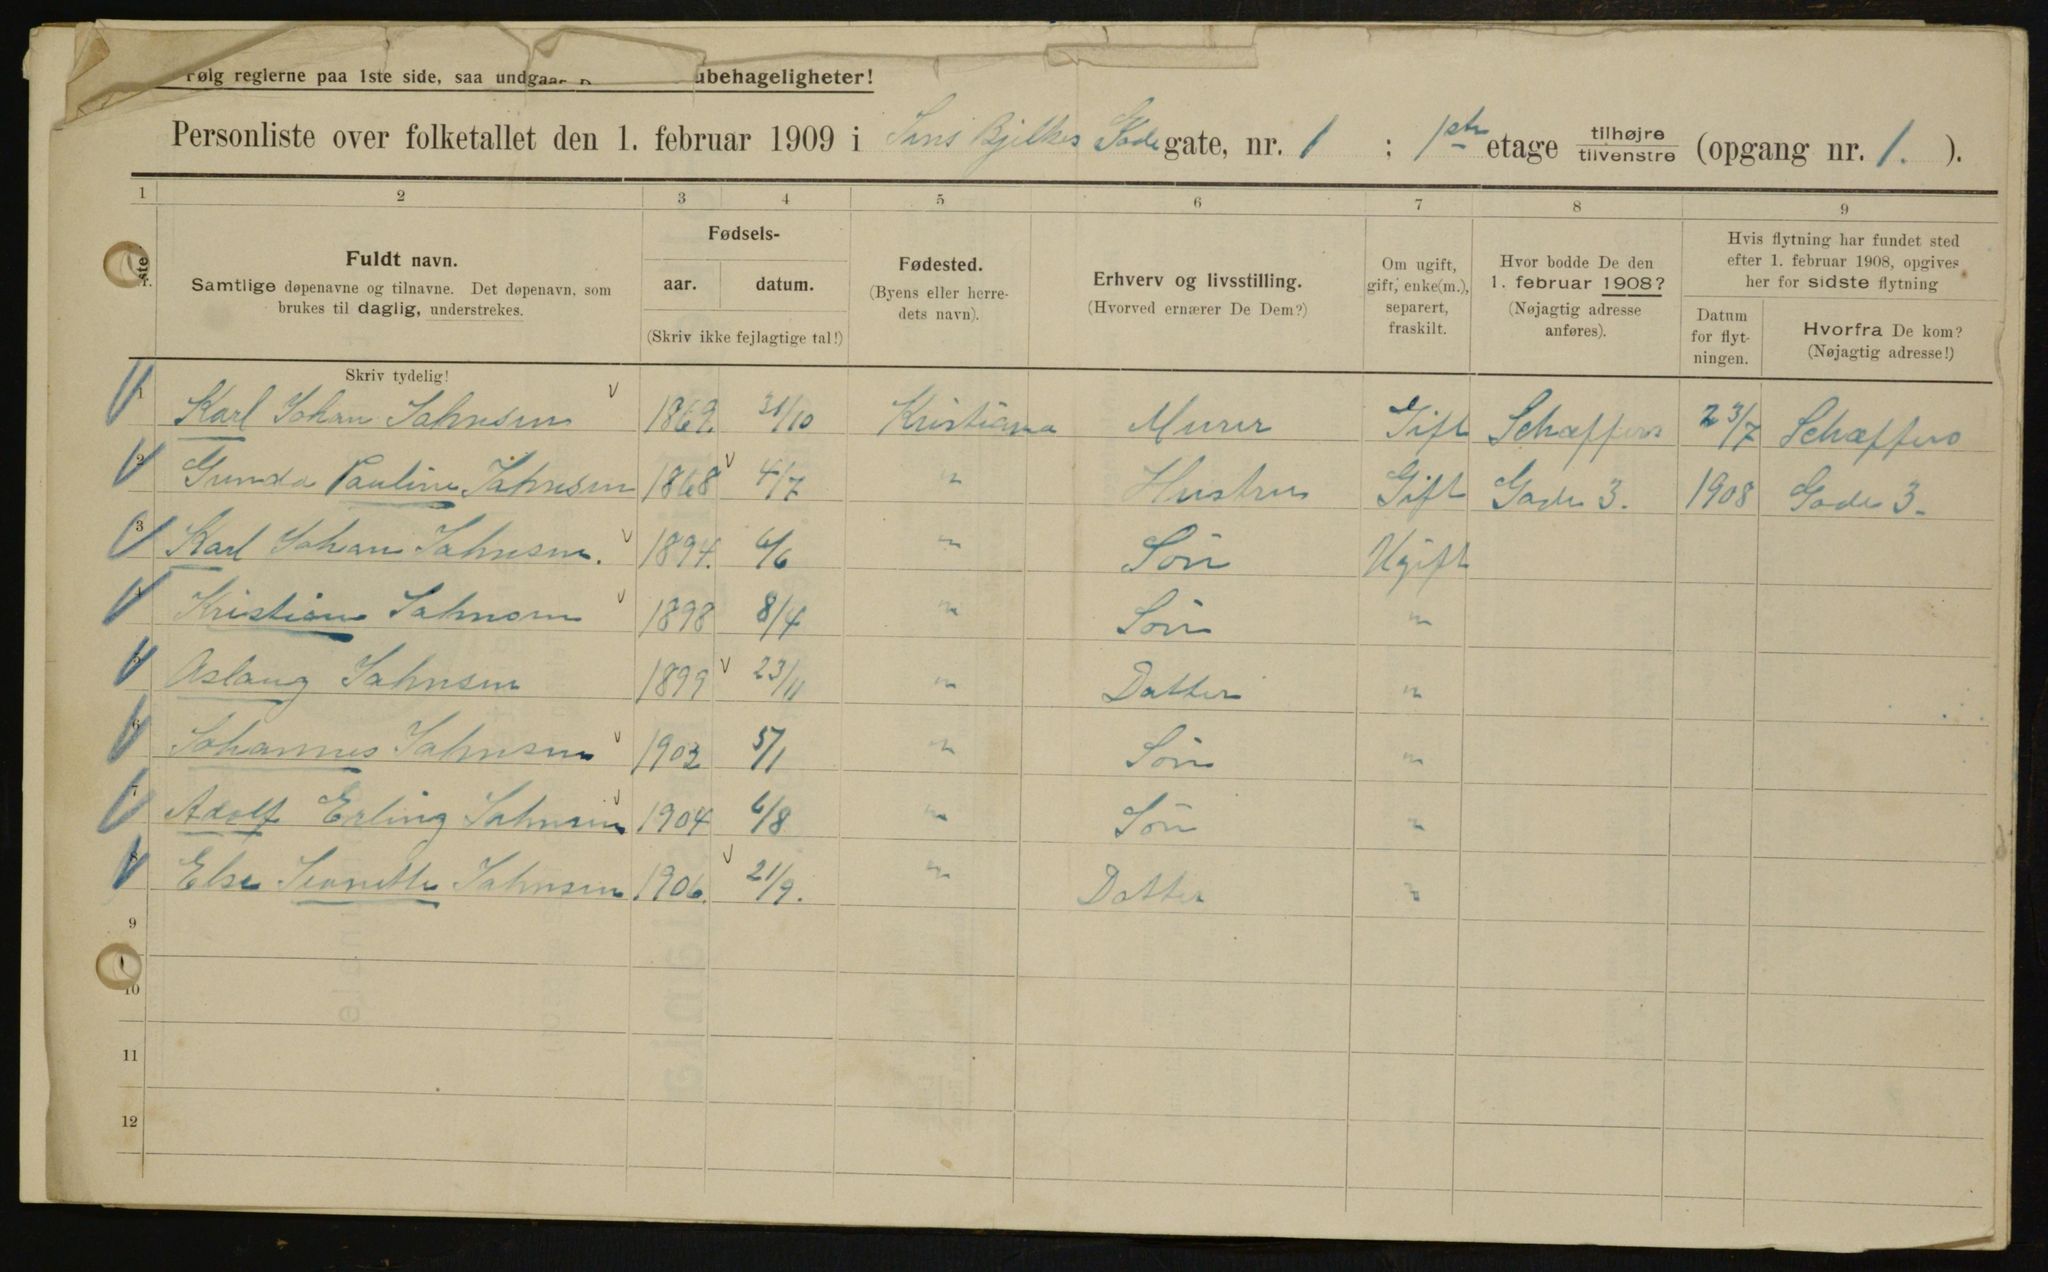 Følg reglerne paa 1ste side, saa undgaar ubehageligheter!
Personliste over folketallet den 1. februar 1909 i Jens Bjelkes Gade gate, nr. 1 ; 1ste etage tilhøjre tilvenstre (opgang nr. 1. ).
1 2 3 4 5 6 7 8 9
Fuldt navn.
Samtlige døpenavne og tilnavne. Det døpenavn, som
brukes til daglig, understrekes.
Skriv tydelig!
Fødsels-
aar. datum.
(Skriv ikke fejlagtige tal!)
Fødested.
(Byens eller herre-
dets navn).
Erhverv og livsstilling.
(Hvorved ernærer De Dem?)
Om ugift,
gift, enke(m.),
separert,
fraskilt.
Hvor bodde De den
1. februar 1908?
(Nøjagtig adresse
anføres).
Hvis flytning har fundet sted
efter 1. februar 1908, opgives
her for sidste flytning
Datum
for flyt-
ningen.
Hvorfra De kom?
(Nøjagtig adresse!)
1 Karl Johan Jahnsen 1869. 31/10 Kristiana Murer Gift Schæffers 23/7 Schæffers
2 Gunda Pauline Jahnsen 1868 4/7 " Hustru Gift Gade 3. 1908 Gade 3.
3 Karl Johan Jahnsen. 1894. 6/6 " Søn Ugift
4 Kristian Jahnsen 1898 8/4 " Søn "
5 Aslaug Jahnsen 1899 23/11 " Datter "
6 Johannes Jahnsen 1902 5/1 " Søn "
7 Adolf Erling Jahnsen 1904 6/8 " Søn "
8 Else Jeanette Jahnsen 1906. 21/9. " Datter "
9
10
11
12